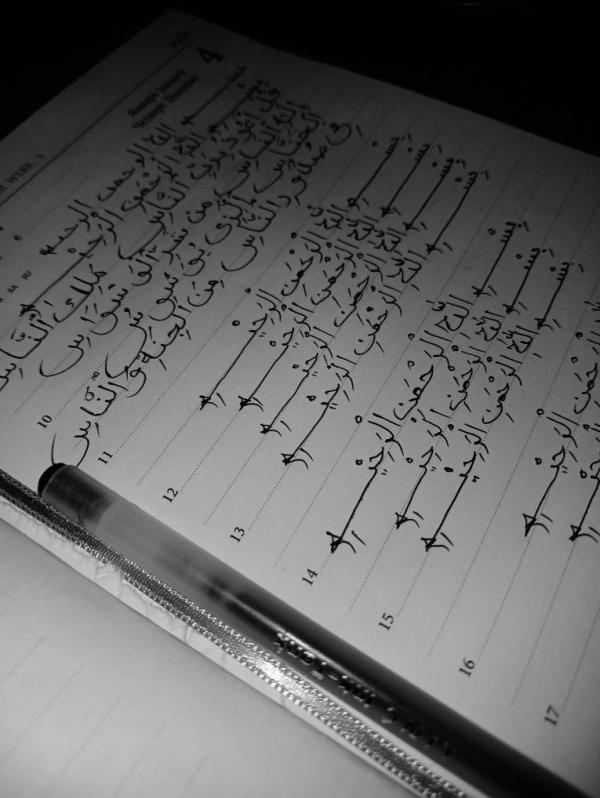 2024
4
WEEK 1
بسم الله الرحمن الرحيم
بِسْمِ اللّٰهِ الرَّحْمٰنِ الرَّحِيْمِ
قُلْ اَعُوْذُ بِرَبِّ النَّاسِ مَلِكِ النَّاسِ
اِلٰهِ النَّاسِ مِنْ شَرِّ الْوَسْوَاسِ
الْخَنَّاسِ الَّذِيْ يُوَسْوِسُ
فِيْ صُدُوْرِ النَّاسِ مِنَ الْجِنَّةِ وَ النَّاسِ
بِسْمِ اللّٰهِ الرَّحْمٰنِ الرَّحِيْمِ
بِسْمِ اللّٰهِ الرَّحْمٰنِ الرَّحِيْمِ
بِسْمِ اللّٰهِ الرَّحْمٰنِ الرَّحِيْمِ
بِسْمِ اللّٰهِ الرَّحْمٰنِ الرَّحِيْمِ
بِسْمِ اللّٰهِ الرَّحْمٰنِ الرَّحِيْمِ
بِسْمِ اللّٰهِ الرَّحْمٰنِ الرَّحِيْمِ
بِسْمِ اللّٰهِ الرَّحْمٰنِ الرَّحِيْمِ
الرَّحْمٰنِ الرَّحِيْمِ
الرَّحِيْمِ
10
11
12
13
14
15
16
17